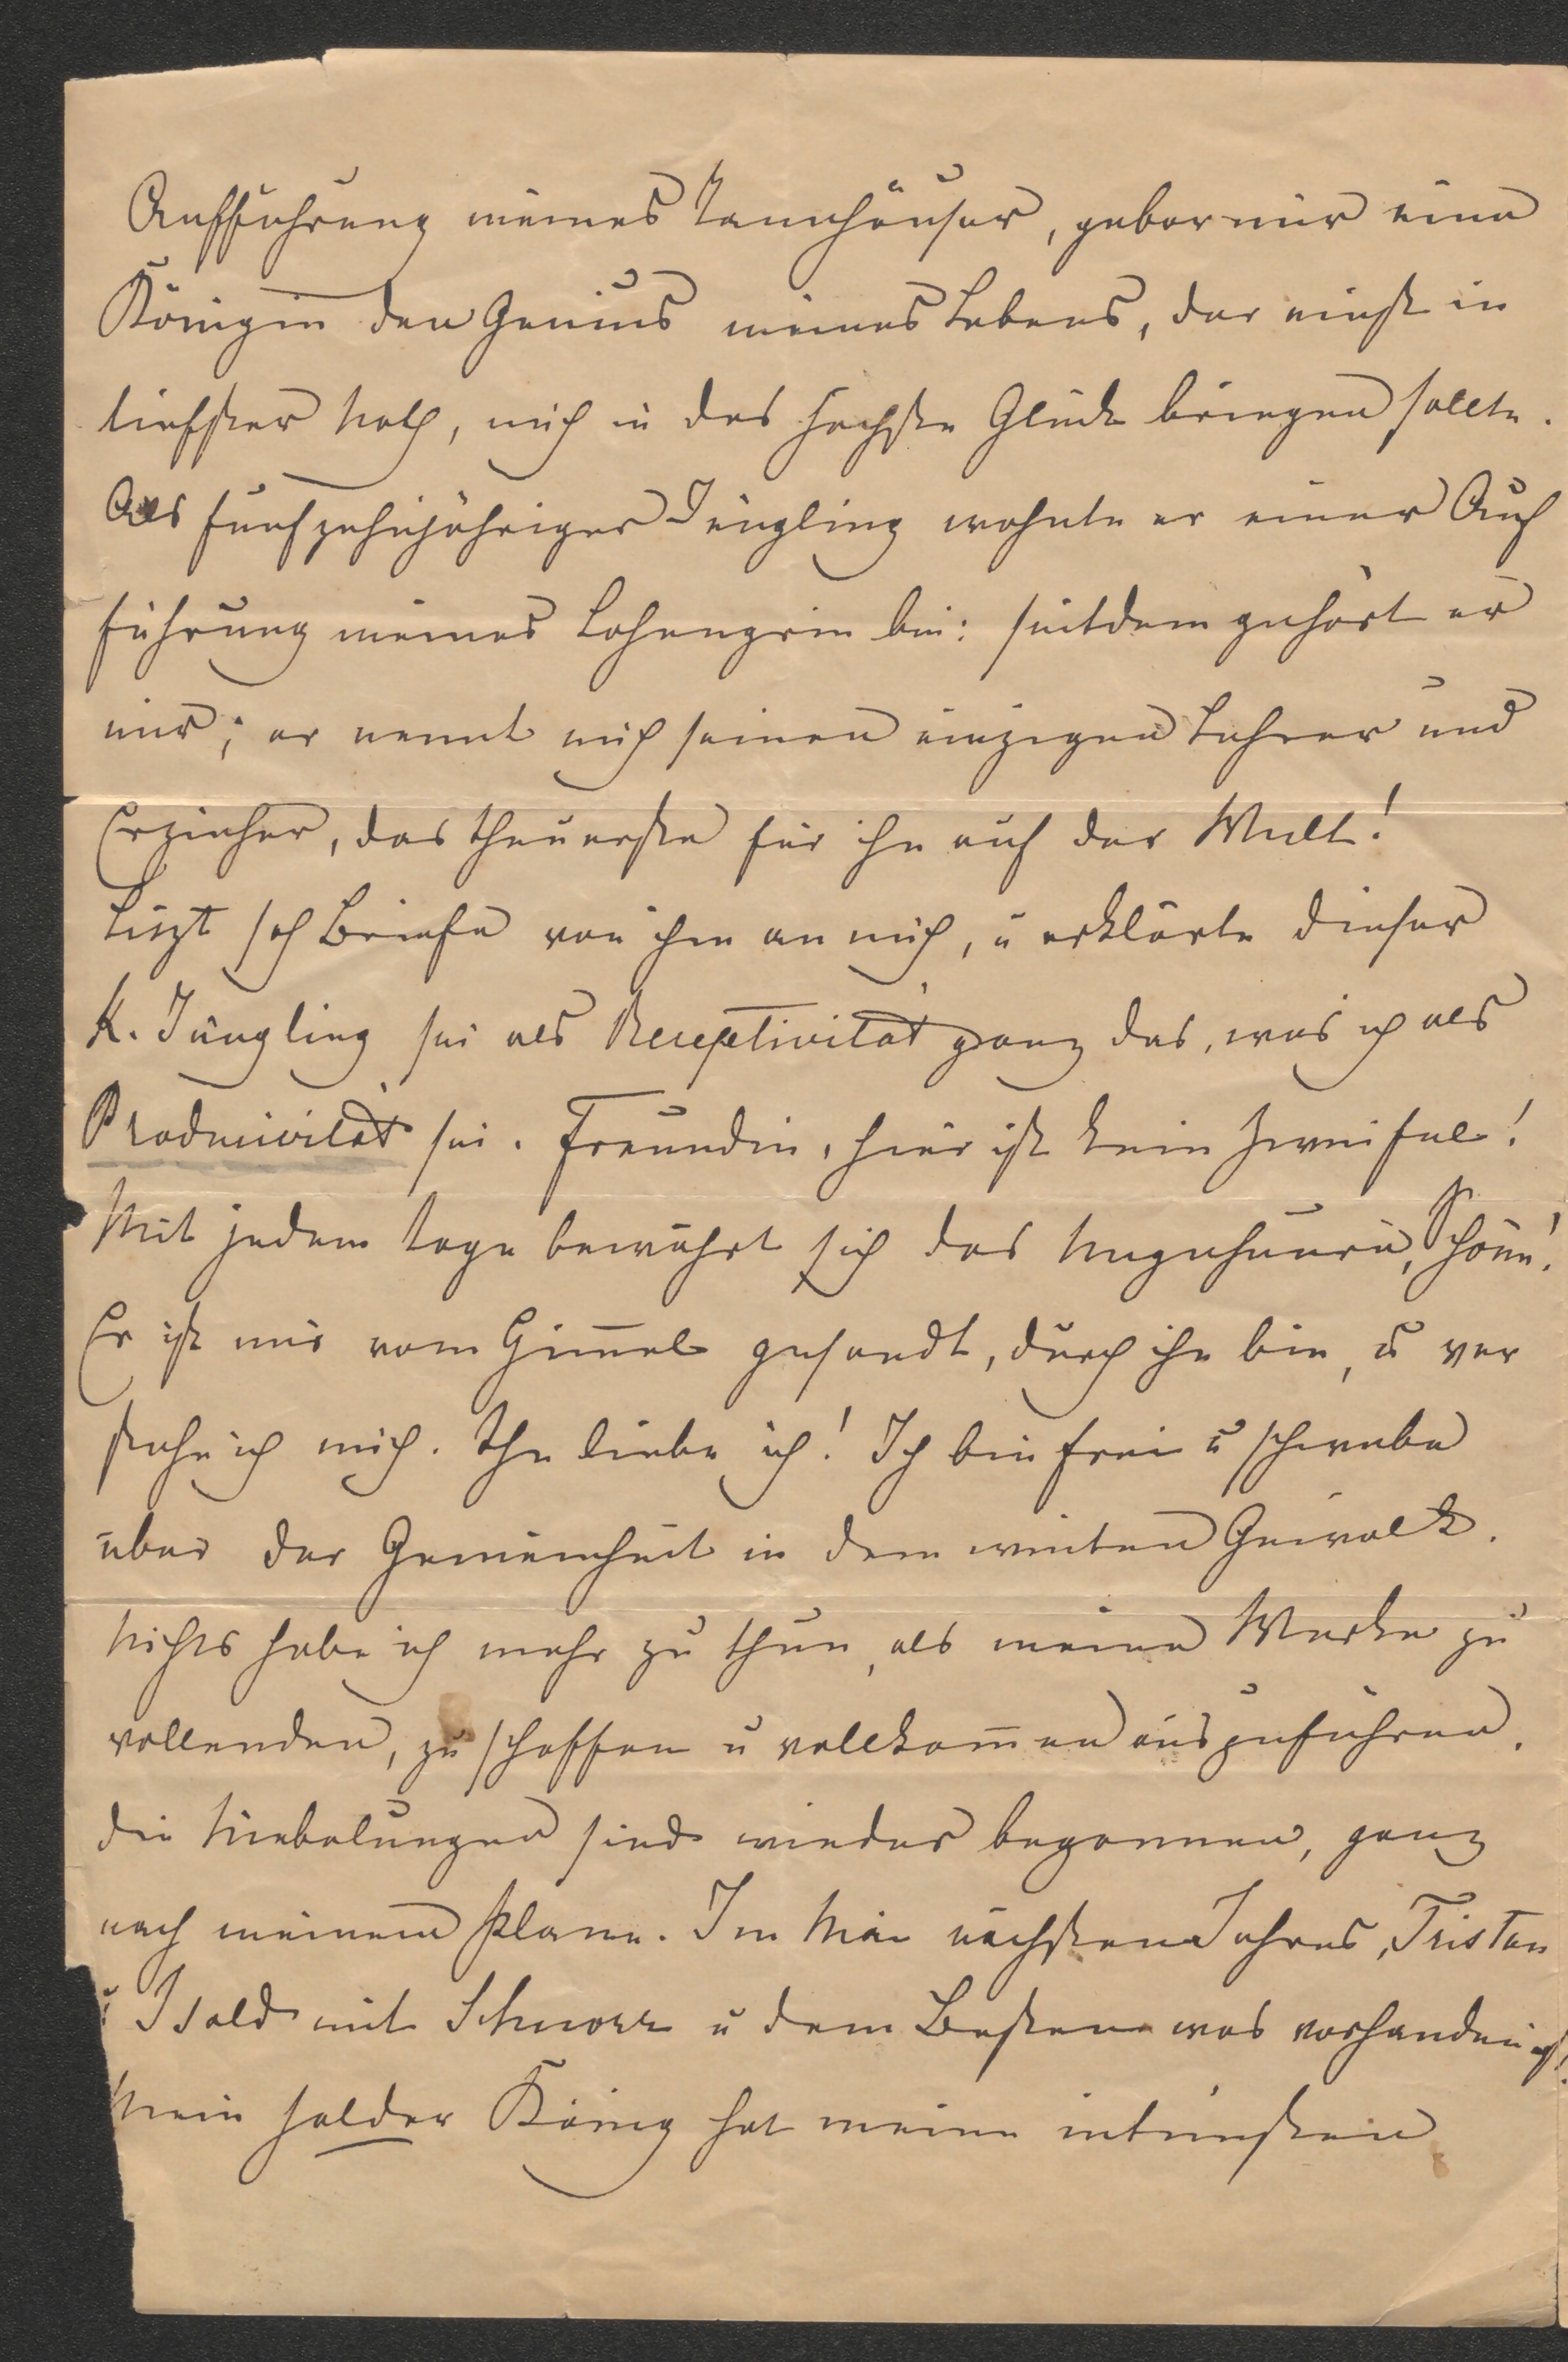 Aufführung meines Tannhäuser, gebar mir eine
Königin den Genius meines Lebens, der einst in
tiefster Noth, mich in das höchste Glück bringen sollte.
Als fünfzehnjähriger Jüngling wohnte er einer Auf
führung meines Lohengrin bei: seitdem gehört er
mir; er nennt mich seinen einzigen Lehrer und
Erzieher, das theuerste für ihn auf der Welt!
Liszt sah Briefe von ihm an mich, u erklärte dieser
K. Jüngling sei als Receptivität ganz das, was ich als
Produivität sei. Freundin, hier ist kein Zweifel!
Mit jedem Tage bewährt sich das Ungeheuere, Schöne!
Er ist mir vom Himmel gesandt, durch ihn bin, u ver
stehe ich mich. Ihn liebe ich! Ich bin frei u schwebe
über der Gemeinheit in dem weiten Gewölk.
Nichts habe ich mehr zu thun, als meine Werke zu
vollenden, zu schaffen u vollkommen auszuführen.
die Niebelungen sind wieder begonnen, ganz
nach meinem Plane. Im Mai nächsten Jahres, Tristan
u Isold mit Schnorr u dem Besten was vorhanden ist!
Mein holder König hat meine intimsten